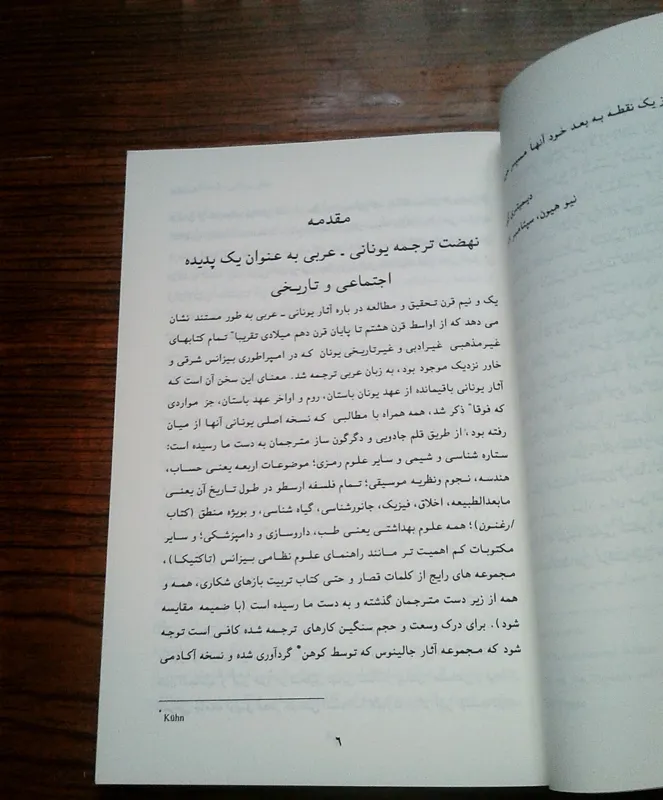 مقدمه
نهضت ترجمه یونانی - عربی به عنوان یک پدیده
اجتماعی و تاریخی
یک و نیم قرن تحقیق و مطالعه در باره آثار یونانی - عربی به طور مستند نشان
می دهد که از اواسط قرن هشتم تا پایان قرن دهم میلادی تقریباً تمام کتابهای
غیرمذهبی غیرادبی و غیرتاریخی یونان که در امپراطوری بیزانس شرقی و
خاور نزدیک موجود بود، به زبان عربی ترجمه شد. معنای این سخن آن است که
آثار یونانی باقیمانده از عهد یونان باستان، روم و اواخر عهد باستان، جز مواردی
که فوقاً ذکر شد، همه همراه با مطالبی که نسخه اصلی یونانی آنها از میان
رفته بود، از طریق قلم جادویی و دگرگون ساز مترجمان به دست ما رسیده است:
ستاره شناسی و شیمی و سایر علوم رمزی؛ موضوعات اربعه یعنی حساب،
هندسه، نجوم ونظریه موسیقی؛ تمام فلسفه ارسطو در طول تاریخ آن یعنی
مابعدالطبیعه، اخلاق، فیزیک، جانورشناسی، گیاه شناسی، و بویژه منطق (کتاب
ارغنون)؛ همه علوم بهداشتی یعنی طب، داروسازی و دامپزشکی؛ و سایر
مکتوبات کم اهمیت تر مانند راهنمای علوم نظامی بیزانس (تاکتیکا)،
مجموعه های رایج از کلمات قصار و حتی کتاب تربیت بازهای شکاری، همه و
همه از زیر دست مترجمان گذشته و به دست ما رسیده است (با ضمیمه مقایسه
شود). برای درک وسعت و حجم سنگین کارهای ترجمه شده کافی است توجه
شود که مجموعه آثار جالینوس که توسط کوهن* گردآوری شده و نسخه آکادمی
* Kühn
٦
یک نقطه به بعد خود آنها مسیر
نیو هیون، سپتامبر